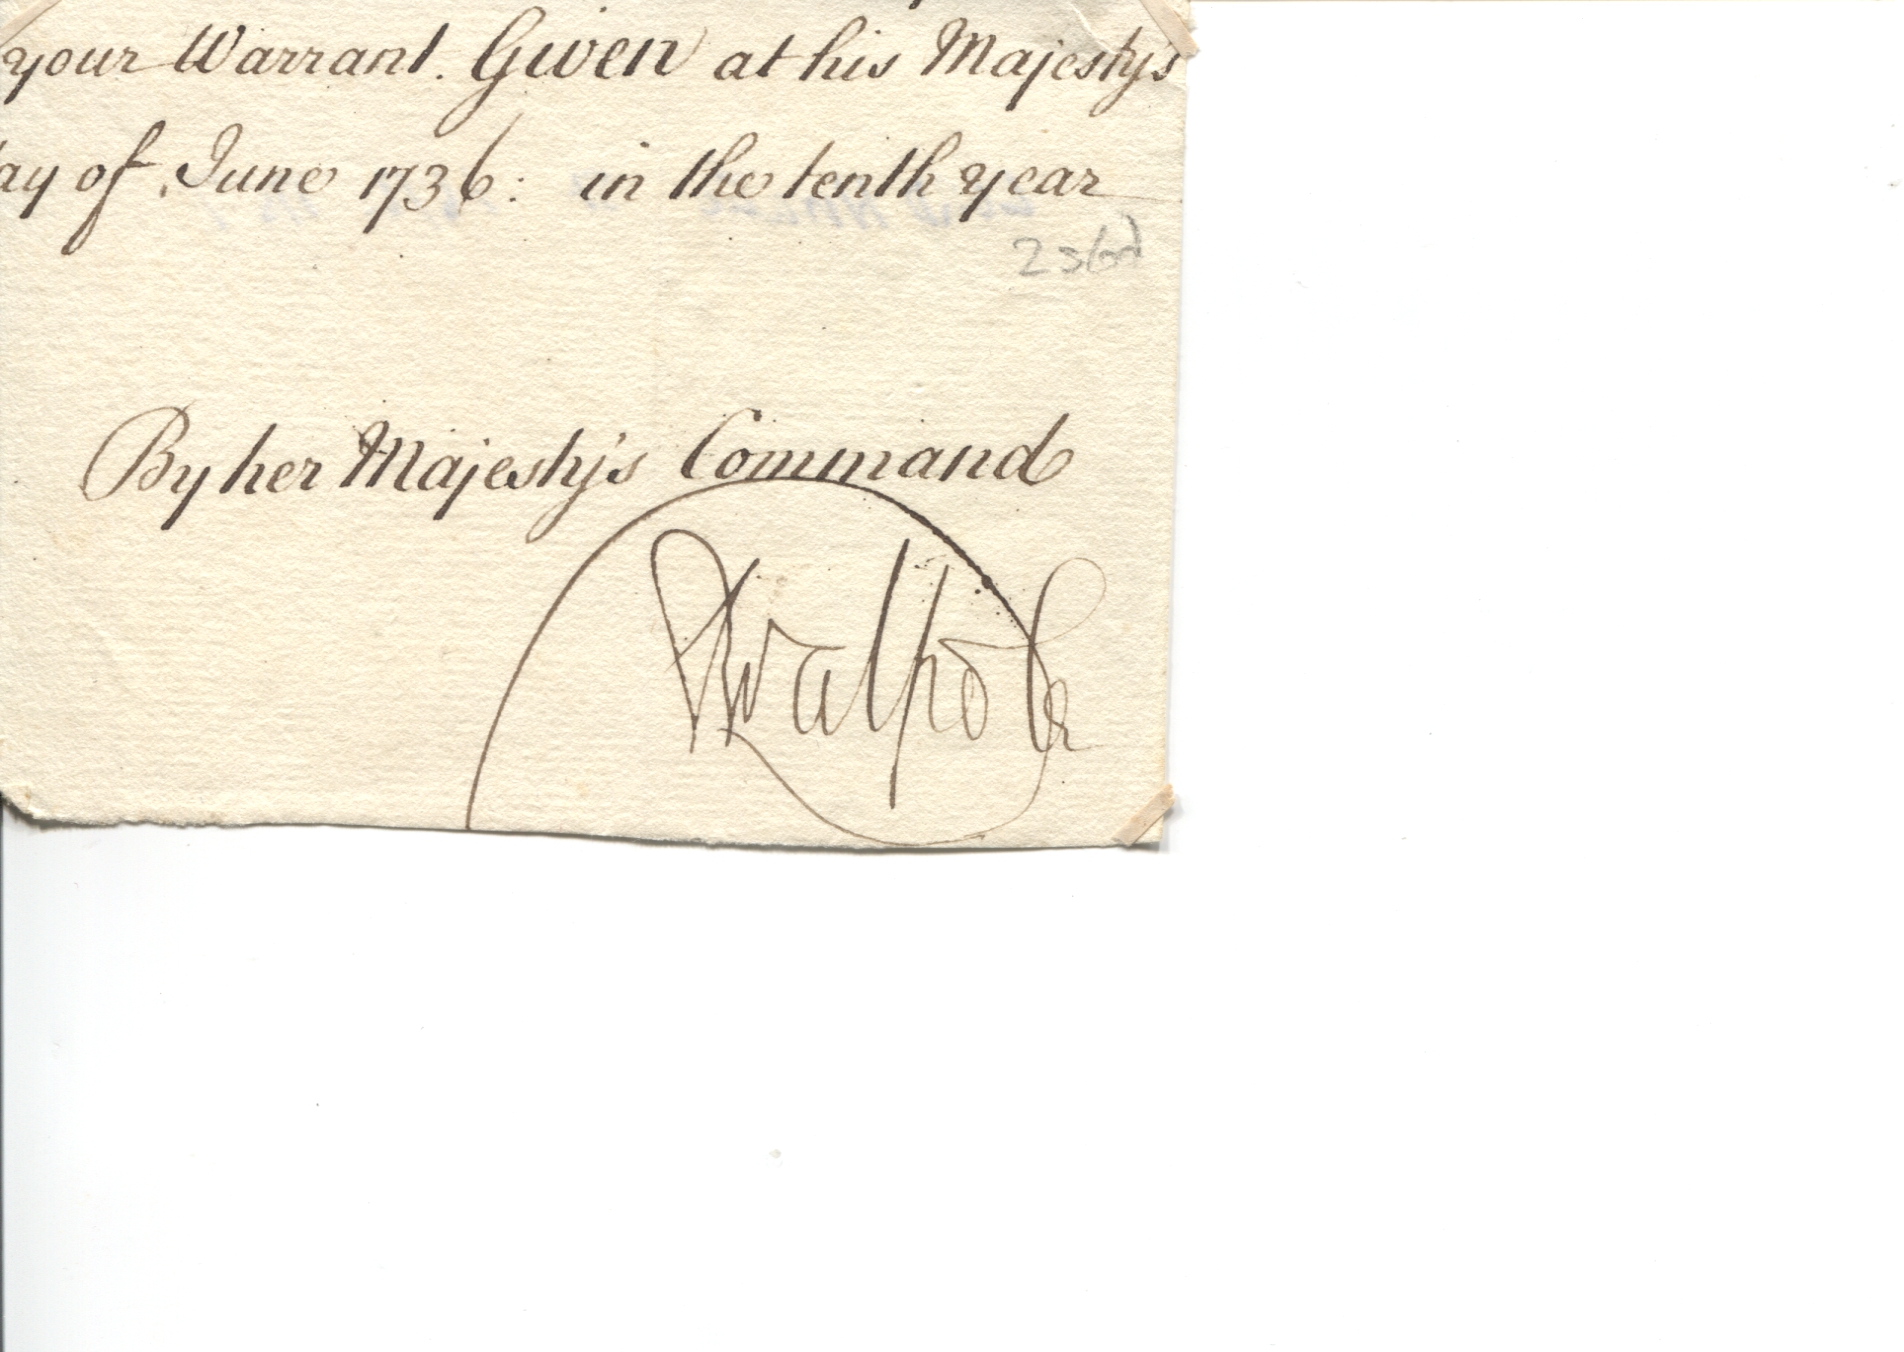 your Warrant. Given at his Majesty's
ay of June 1736: in the tenth year
By her Majesty's Command
RWalpole